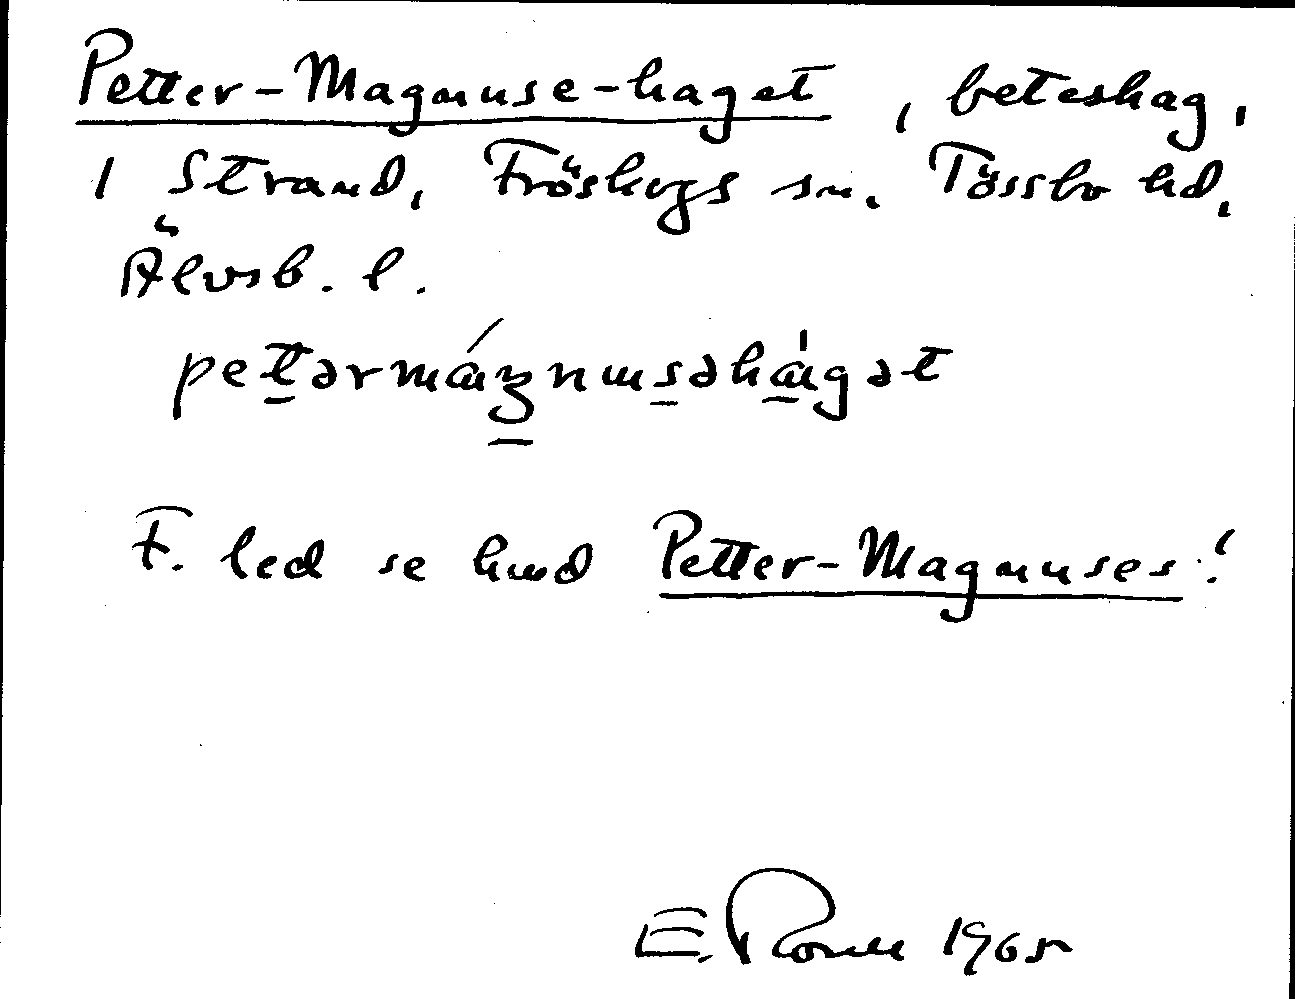 Petter-Magnuse-haget, beteshag,
1 Strand, Fröskogs sn. Tössbo hd,
Älvsb. l.
petərmáɡnusəhàgət
F. led se hmd Petter-Magnuses!
E. 1965